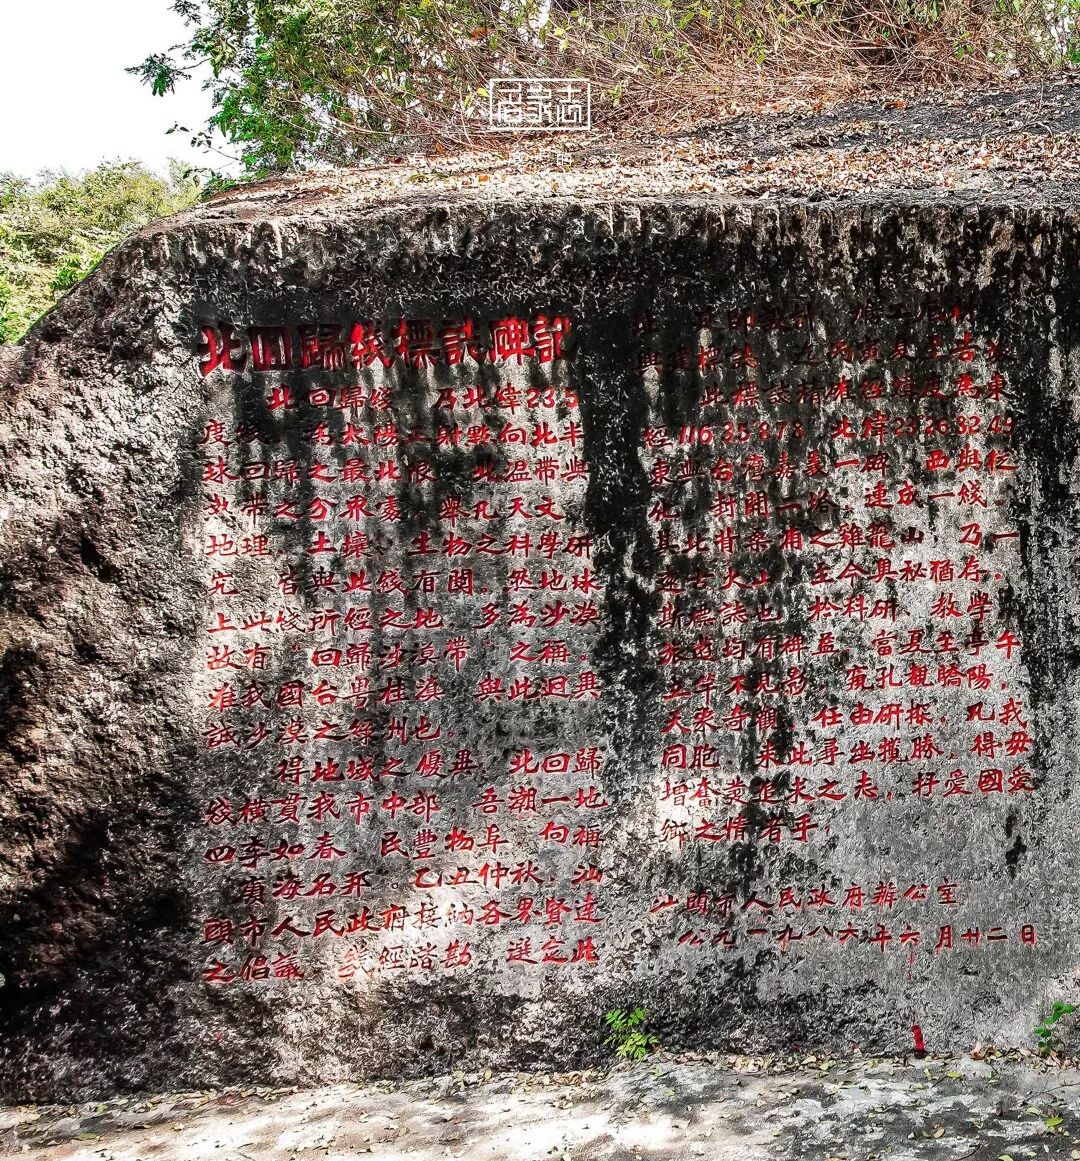 名家志
北回歸线標誌碑記
北回歸綫 乃北緯23.5
度綫。為太陽正射點向北半
球回歸之最北限 北温帶與
熱帶之分界綫。舉凡天文、
地理、土壤、生物之科學研
究 皆與此綫有關。然地球
上此綫所經之地 多為沙漠
故有“回歸沙漠帶”之稱。
准我國台粤桂滇 與此迴異
誠沙漠之綠州也。
得地域之優異，北回歸
綫橫贯我市中部，吾潮一地
四季如春 民豐物阜 句稱
嶺海名邦。乙丑仲秋，汕
頭市人民政府接納各界賢達
之倡議 經踏勘 選定此
址
興建標誌
此標誌精確 經緯度為東
經116 35 878 北緯23 26 32 49
東與台灣嘉義一碑 西與
化 封開一洽，連成一綫。
其北背桑浦之雞籠山，乃一
古火山 至今奥秘猶存。
斯標誌也 於科研、教學、
旅遊均有裨益，當夏至亭午
立竿不見影，窺孔觀驕陽，
天象奇觀 任由研探，凡我
同胞，來此尋幽攬勝，得毋
增奮發進取之志，抒愛國愛
鄉之情者乎，
汕頭市人民政府辦公室
公元一九八六年六月廿二日